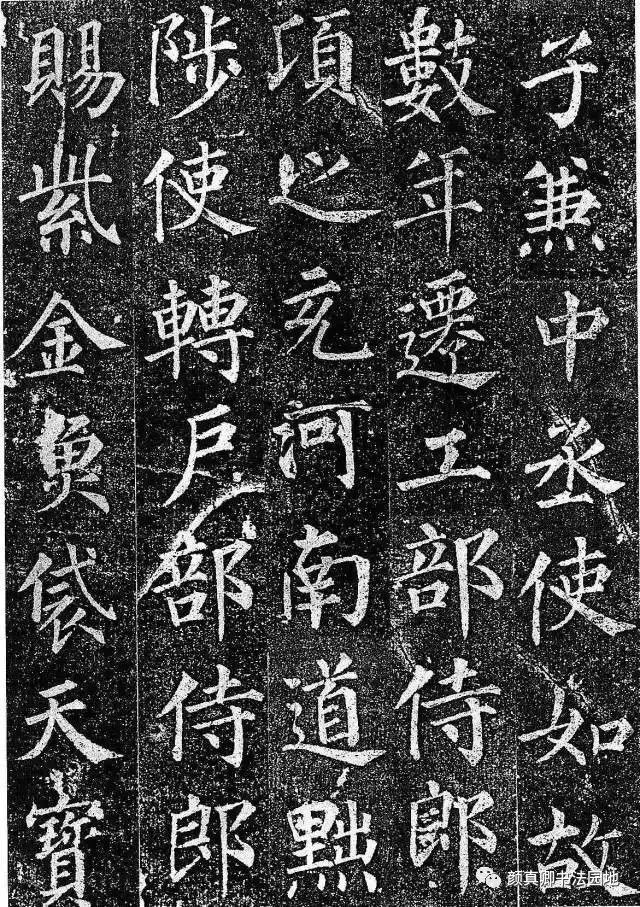 子兼中丞使如故
數年遷工部侍郎
項之充河南道黜
陟使轉户部侍郎
賜紫金魚袋天寶
颜真卿书法园地